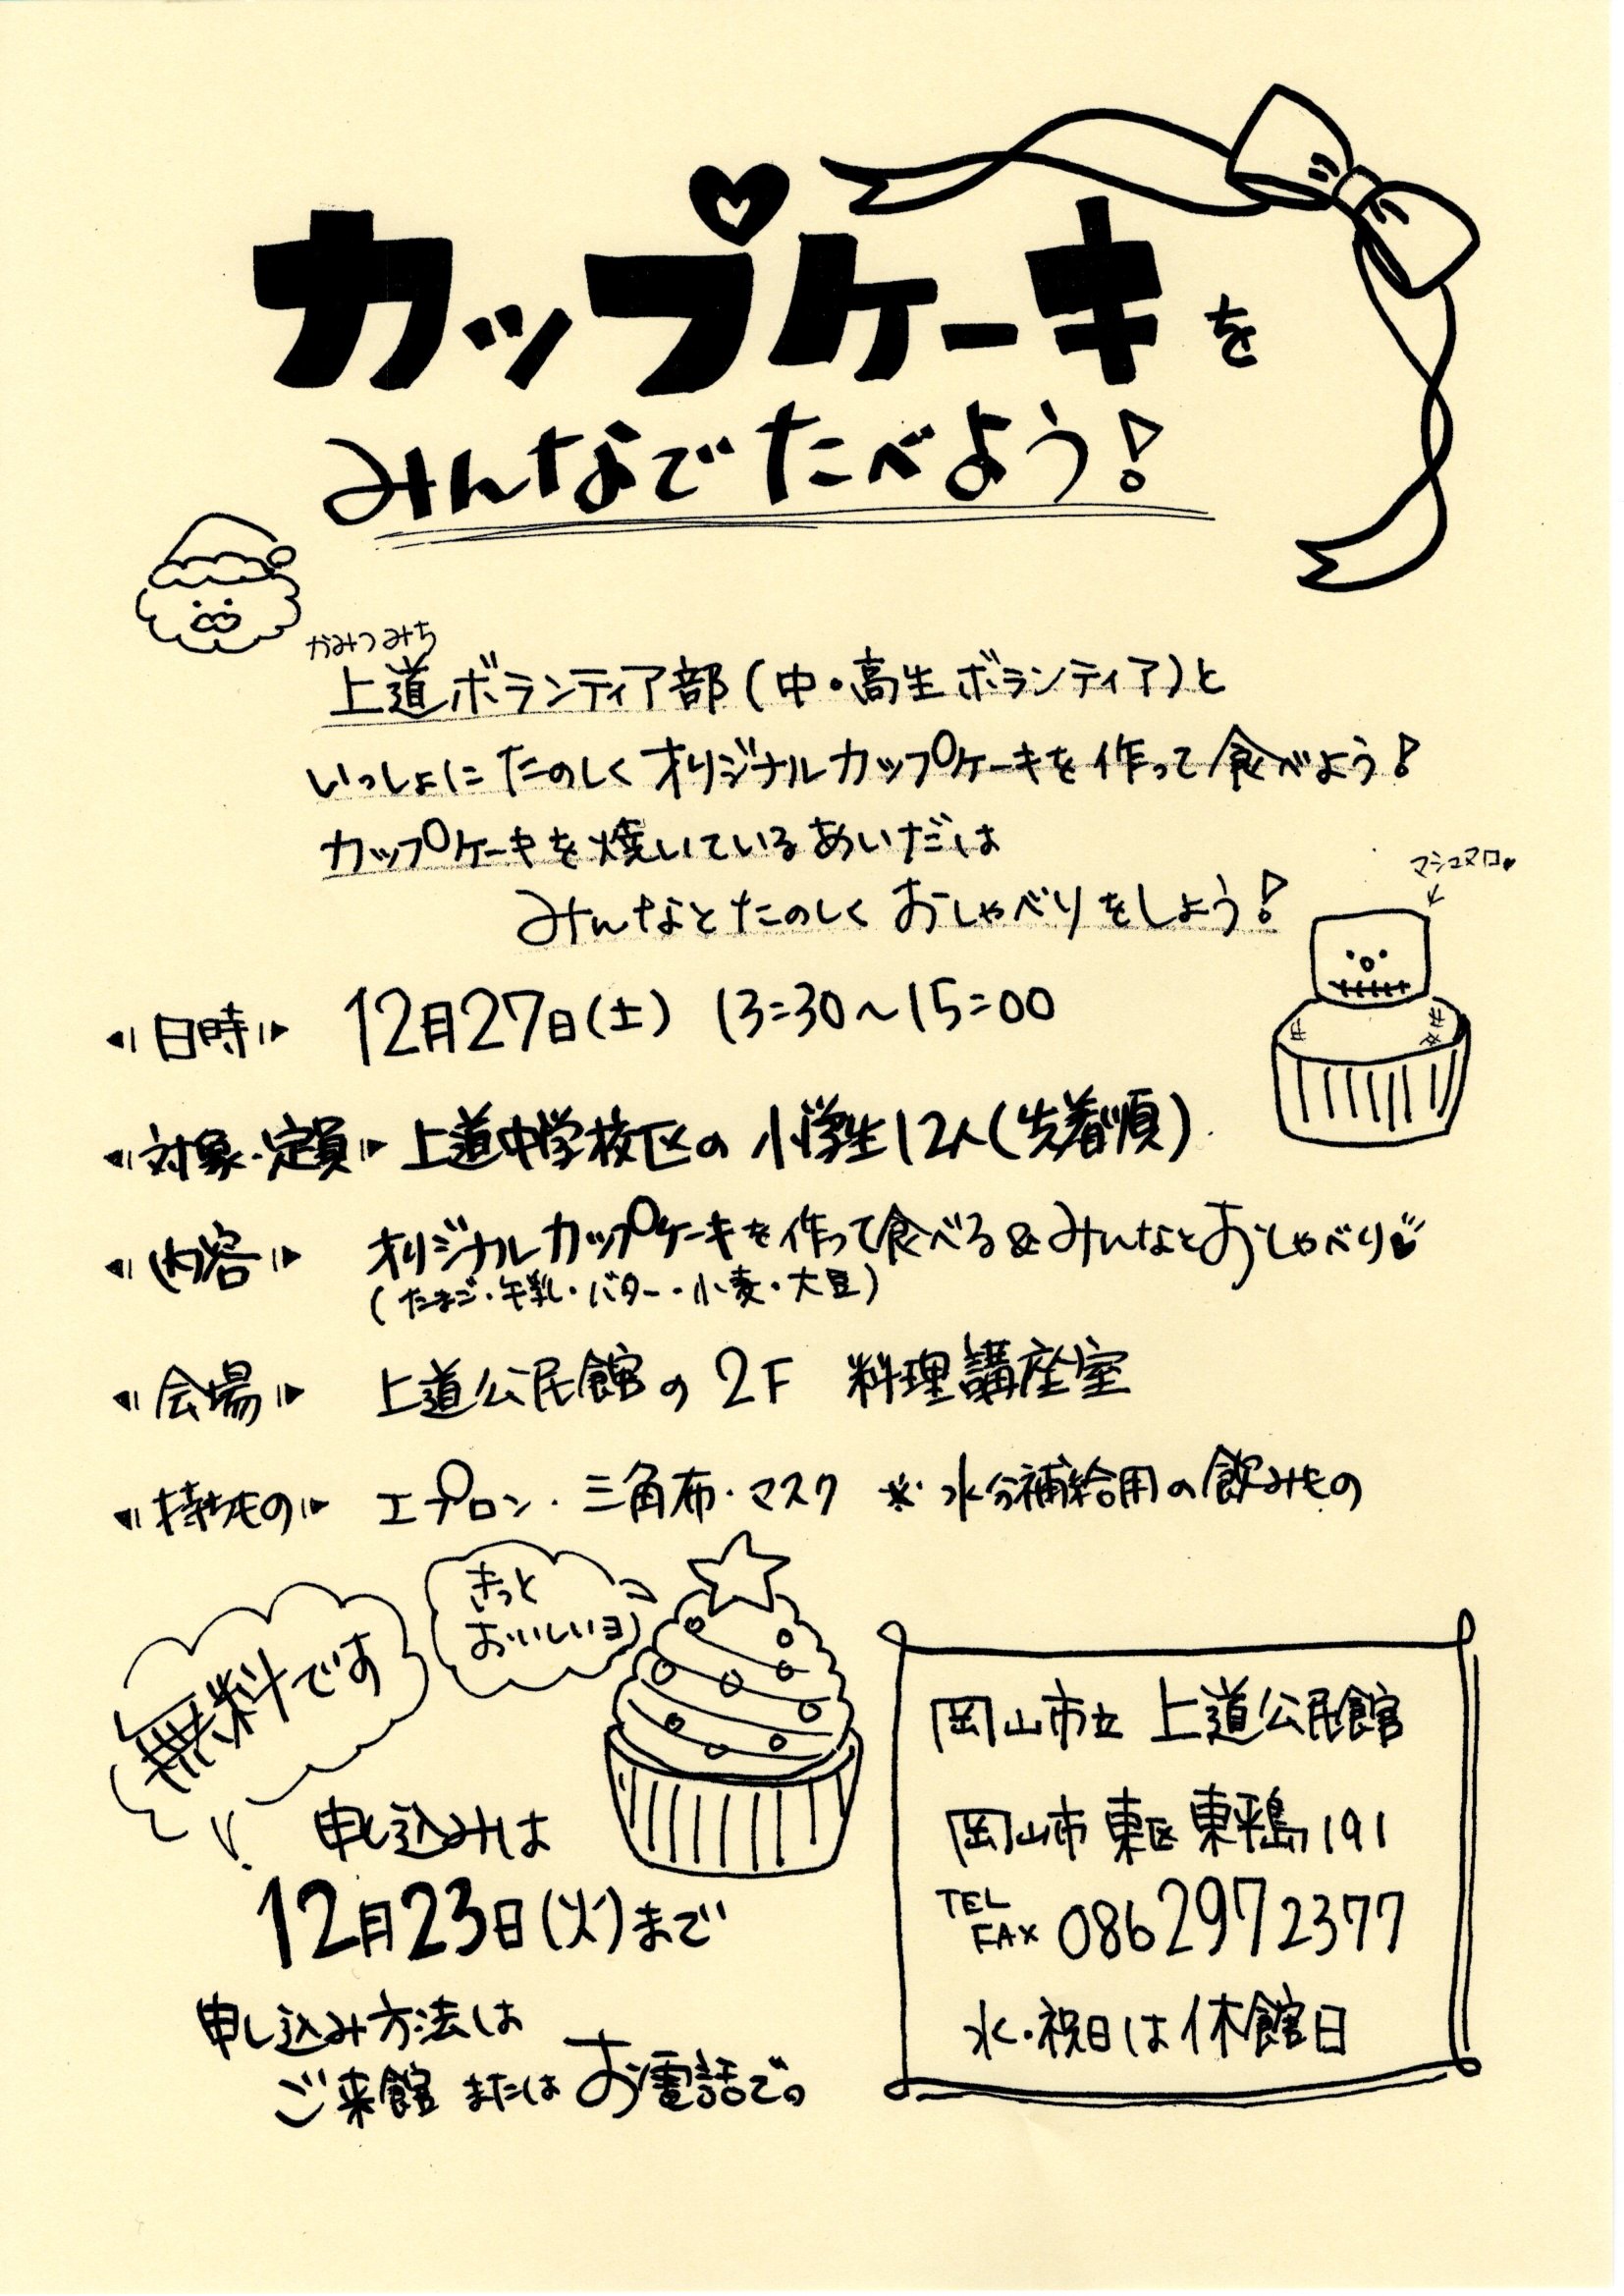 カップケーキを
みんなでたべよう!
かみつみち
上道ボランティア部(中・高生ボランティア)と
いっしょにたのしくオリジナルカップケーキを作って食べよう!
カップケーキを焼いているあいだは
みんなとたのしくおしゃべりをしよう!
マシュマロ
日時 12月27日(土) 13:30~15:00
対象・定員 上道中学校区の小学生12人(先着順)
内容 オリジナルカップケーキを作って食べる&みんなとおしゃべり
(たまご・牛乳・バター・小麦・大豆)
会場 上道公民館の2F 料理講座室
持ちもの エプロン・三角布・マスク ※水分補給用の飲みもの
きっと
おいしいヨ
無料です
申し込みは
12月23日(火)まで
申し込み方法は
ご来館またはお電話で。
岡山市立 上道公民館
岡山市東区東平島191
TEL
FAX 0862972377
水・祝日は休館日